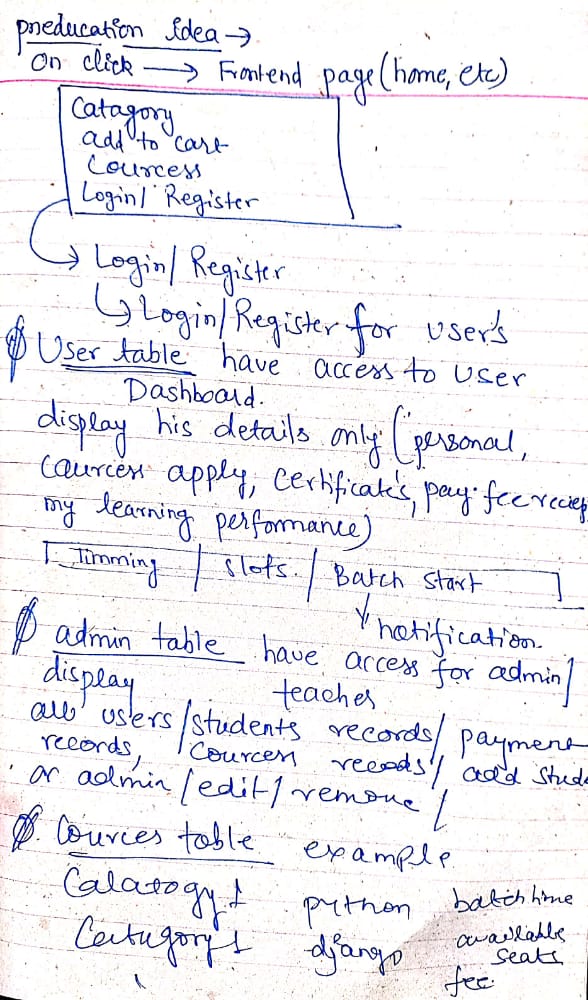 pneducation idea →
On click → Frontend page (home, etc)
Catagory
add to cart
Courcess
Login/ Register
Login/ Register
Login/Register for user's
User table have access to user
Dashboard.
display his details only (personal,
Caurcess apply, Certificate's, pay. fee reciep
my learning performance)
Timming / slots. / Batch start
notification.
admin table have access for admin/
display teacher
all users/students records/ payment
records, Courcess records/ add Stude
or admin /edit/ remove /
Cources table example
Calatogy 1 python batch time
Catugory 1 django available
seats
fee